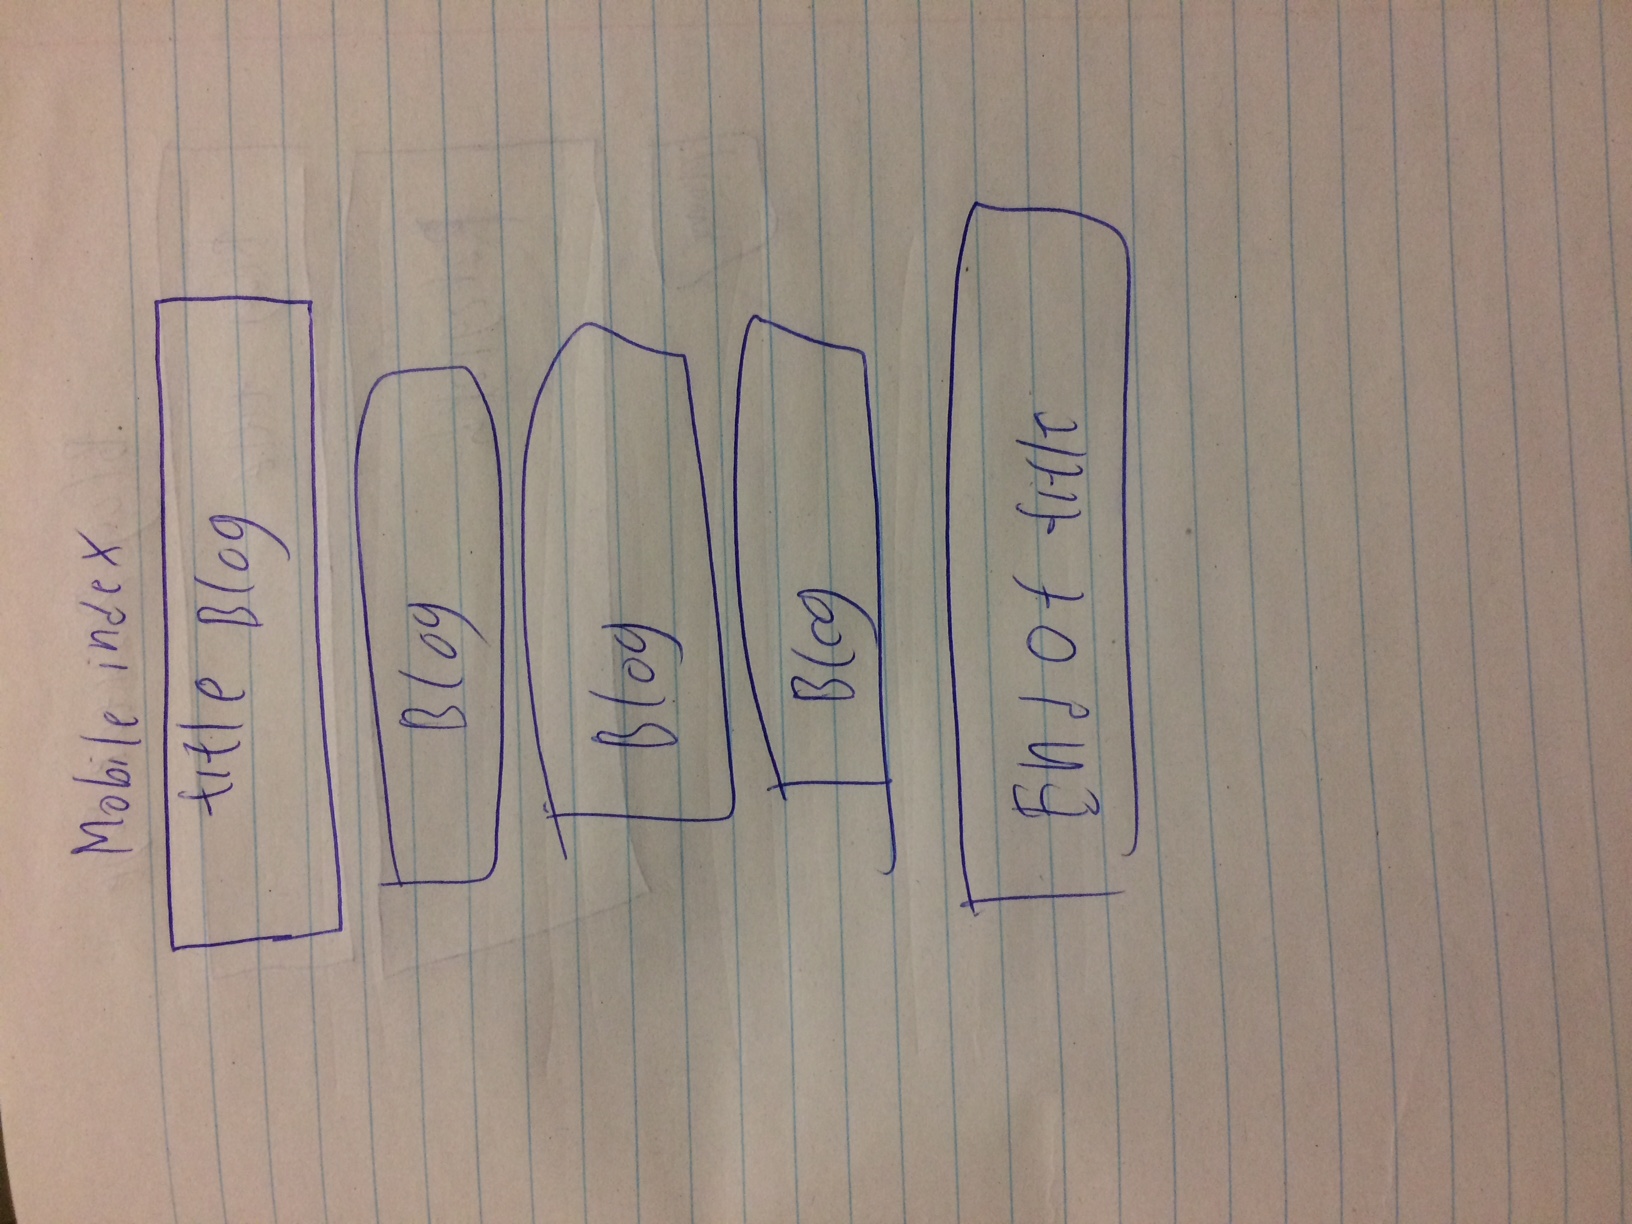 Mobile index
title Blog
Blog
Blog
Blog
End Of title